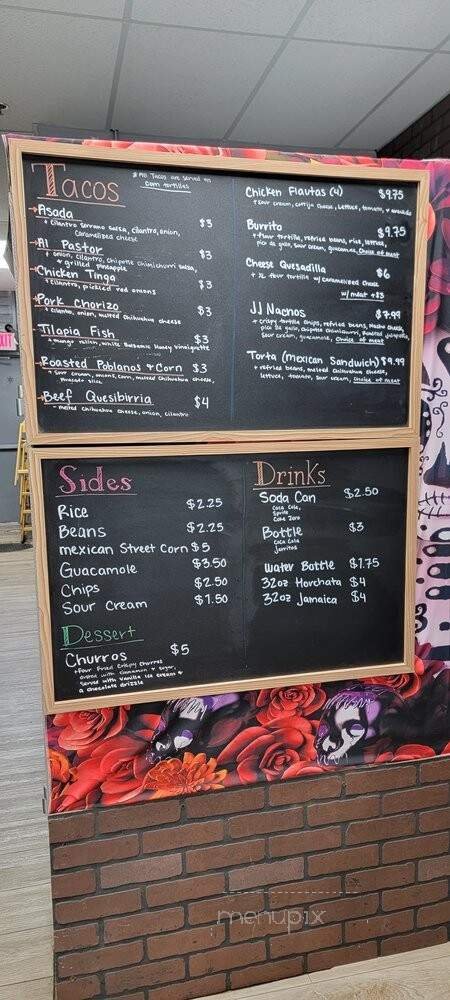 Tacos
* All Tacos are served on
corn tortillas
Asada $3
+ cilantro serrano salsa, cilantro, onion,
caramelized cheese
Al Pastor $3
+ onion, cilantro, chipotle chimichurri salsa,
+ grilled pineapple
Chicken Tinga $3
+ cilantro, pickled red onions
Pork Chorizo $3
+ cilantro, onion, melted chihuahua cheese
Tilapia Fish $3
+ mango relish, white balsamic honey vinaigrette
Roasted Poblanos + Corn $3
+ sour cream, onions, corn, melted chihuahua cheese,
avocado slice
Beef Quesibirria $4
- melted chihuahua cheese, onion, cilantro
Chicken Flautas (4) $9.75
+ sour cream, cotija cheese, lettuce, tomato, + avocado
Burrito $9.75
+ flour tortilla, refried beans, rice, lettuce,
pico de gallo, sour cream, guacamole, choice of meat
Cheese Quesadilla $6
+ XL flour tortilla w/ caramelized cheese
w/ meat +$3
JJ Nachos $7.99
+ crispy tortilla chips, refried beans, nacho cheese,
pico de gallo, chipotle chimichurri, pickled jalapeño,
sour cream, guacamole, choice of meat
Torta (mexican sandwich) $9.99
+ refried beans, melted chihuahua cheese,
lettuce, tomato, sour cream, choice of meat
Sides
Rice $2.25
Beans $2.25
mexican Street Corn $5
Guacamole $3.50
Chips $2.50
Sour Cream $1.50
Dessert
Churros $5
+ four fried crispy churros
coated with cinnamon + sugar,
served with vanilla ice cream +
a chocolate drizzle
Drinks
Soda Can $2.50
Coca Cola,
Sprite
Coke Zero
Bottle $3
Coca Cola
Jarritos
Water Bottle $1.75
32oz Horchata $4
32oz Jamaica $4
menupix